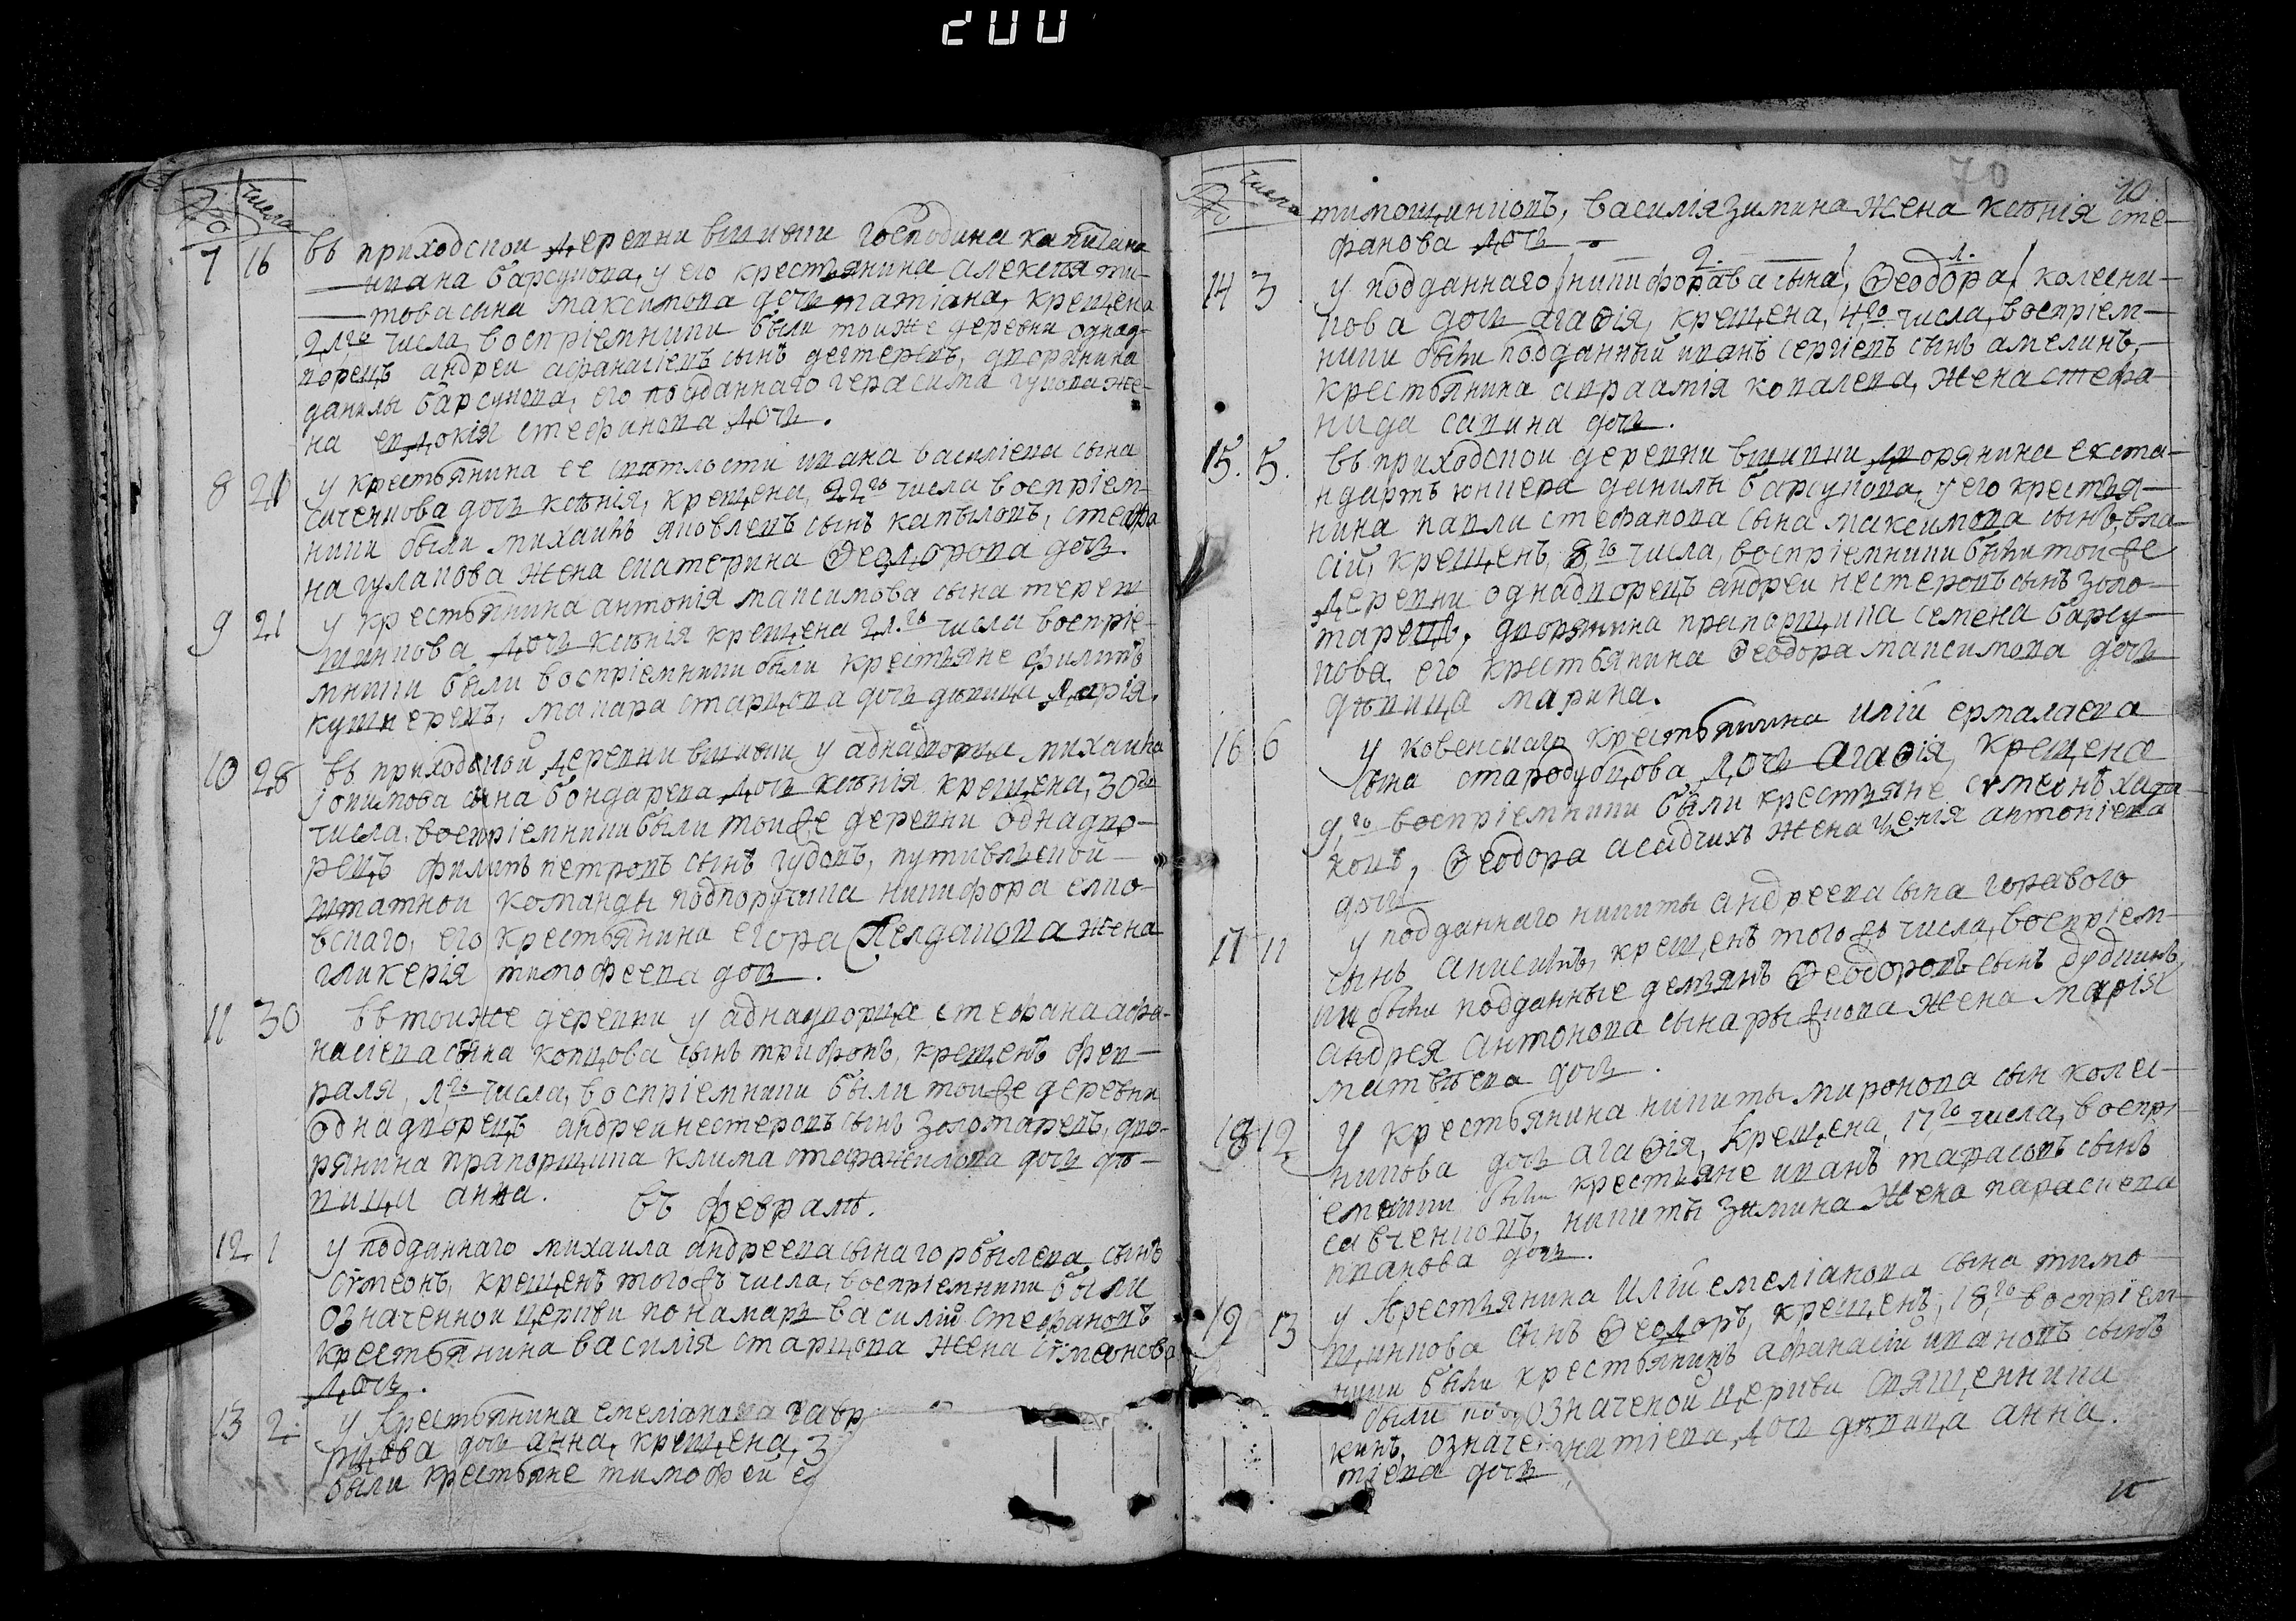 200
число
7 16 въ приходской деревни вшивки господина капитана
ивана барсукова, у его крестьянина алексея ти-
това сына максимова дочь татіана, крещена
21го числа, воспріемники были тоиже деревни однад-
ворецъ андреи афанасіевъ сынъ дегтеревъ, дворянина
данилы барсукова, его подданнаго герасима гукова же-
на евдокія стефанова дочь.
8 21 у крестьянина ее свѣтлости ивана василіева сына
дочь ксѣнія, крещена, 22го числа воспріем-
ники были михаилъ яковлевъ сынъ капыловъ, стефа
на гулакова жена екатерина Ѳеодорова дочь.
9 21 у крестьянина антонія максимова сына терещ
шинкова дочь ксѣнія крещена 21го числа воспріе-
мники были воспріемники были крестьяне филипъ
кушнеревъ, макара старцова дочь дѣвица дарія.
10 28 въ приходской деревни вшивки у аднадворца михаила
іосипова сына бондарева дочь ксѣнія крещена, 30го
числа, воспріемники были тоиже деревни однадво-
рецъ филипъ петровъ сынъ гудовъ, путивльской
штатной команды подпоручика никифора
вскаго, его крестьянина егора жена
гликерія тимофеева дочь.
11 30 въ тоиже деревни у аднадворца стефана афа-
насіева сына копцова сынъ трифонъ, крещенъ фев-
раля, 1го числа, воспріемники были тоиже деревни
однадворецъ андреи нестеровъ сынъ золотаревъ, дво-
рянина прапорщика клима дочь дѣ-
вица анна.
въ февралѣ.
12 1 у подданнаго михаила андреева сына горбылева, сынъ
сѵмеонъ, крещенъ того жъ числа, воспріемники были
означенной церкви понамарь василій стефановъ
крестьянина василія старцова жена сѵмеонова
дочь.
13 2 у крестьянина емеліанова гавр
рцова дочь анна, крещена, 3
были крестьяне тимофей е
70
10
число
тимощинковъ, василія зимина жена ксѣнія сте-
фанова дочь
2. 1.
14 3 у подданнаго никифорава сына, Ѳеодора колесни-
кова дочь агаѳія, крещена, 4го числа, воспріем-
ники были подданный иванъ сергіевъ сынъ амелинъ,
крестьянина ковалева, жена стефа-
нида савина дочь.
15. 5. въ приходской деревни вшивки дворянина екста-
ндартъ юнкера данилы барсукова, у его крестья-
нина павла стефанова сына максимова сынъ, вла-
сій, крещенъ, 8го числа, воспріемники были тоиже
деревни однадворецъ андреи нестеровъ сынъ золо-
таревъ, дворянина прапорщика семена барсу-
кова, его крестьянина Ѳеодора максимова дочь
дѣвица марина.
16 6 у ковенскаго крестьянина илій ермалаева
сына стародубцова дочь агаѳія, крещена
9го воспріемники были крестьяне сѵмеонъ
ковъ, Ѳеодора асадчихъ жена антоніева
дочь
17 11 у подданнаго никиты андреева сына горавого
сынъ анисимъ, крещенъ того жъ числа, воспріем-
ки были подданные демьянъ Ѳеодоровъ сынъ дудкинъ,
андрея антонова сына рыжкова жена марія
матвѣева дочь.
18 12 у крестьянина никиты миронова сын колес-
никова дочь агаѳія, крещена, 17го числа, воспрі-
емники были крестьяне иванъ тарасовъ сынъ
савченковъ, никиты зимина жена параскева
иванова дочь.
19 13 у крестьянина илій емеліанова сына тимо
щинкова сынъ Ѳеодоръ, крещенъ, 18го воспріем-
ники были крестьянинъ афанасій ивановъ сынъ
были означеной церкви священника
кинъ, означе гнатіева дочь дѣвица анна.
тіева дочь